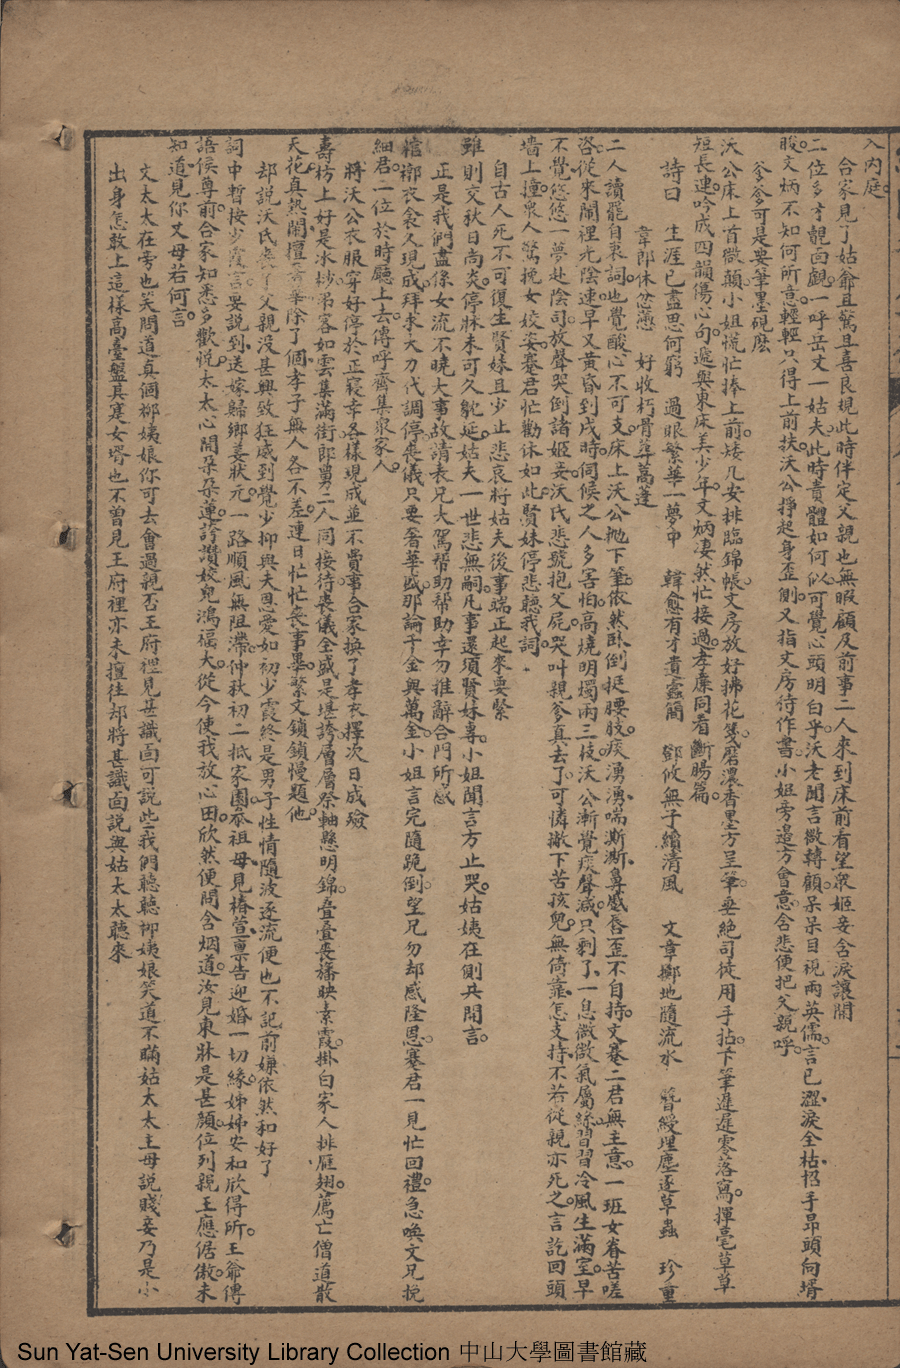 入內庭。
合家見了姑爺且驚且喜良規此時伴定父親也無暇顧及前事二人來到床前看望衆姬妾含淚讓開
二位多才靚面覷。一呼岳丈一姑夫。此時貴體如何似。可覺心頭明白乎。沃老聞言微轉顧。呆呆目視兩英儒。言已澀、淚全枯。招手昂頭向壻
晙。文炳不知何所意。輕輕只得上前扶。沃公掙起身歪側。又指文房待作書。小姐旁邉方會意。含悲便把父親呼。
爹爹可是要筆墨硯麽
沃公床上首微顛。小姐慌忙捧上前。矮几安排臨錦帳。文房放好拂花箋。磨濃香墨方呈筆。垂絕司徒用手拈。下筆遲遲零落寫。揮毫草草
短長連。吟成四韻傷心句。遞與東床美少年。文炳凄然忙接過。孝廉同看斷腸篇。
詩曰 生涯已盡思何窮 過眼繁華一夢中 韓愈有才遺蠹簡 鄧攸無子續清風 文章擲地隨流水 簪綬埋塵逐草蟲 珍重
韋郎休怨懟 好收朽骨葬蒿蓬
二人讀罷自哀詞。也覺酸心不可支。床上沃公拋下筆。依然卧倒挺腰肢。痰湧湧、喘澌澌。鼻慼唇歪不自持。文蹇二君無主意。一班女眷苦嗟
咨。從來閙裡光陰速。早又黃昏到戍時。伺候之人多害怕。高燒明燭兩三枝。沃公漸覺痰聲減。只剩了、一息微微氣屬絲。習習冷風生滿室。早
不覺、悠悠一夢赴陰司。放聲哭倒諸姬妾。沃氏悲號抱父屍。哭叫親爹真去了。可憐撇下苦孩兒。無倚靠、怎支持。不若從親亦死之。言訖回頭
墻上撞。衆人驚挽女姣姿。蹇君忙勸休如此。賢妹停悲聽我詞。
自古人死不可復生賢妹且少止悲哀料姑夫後事端正起來要緊
雖則交秋日尚炎。停牀未可久躭延。姑夫一世悲無嗣。凡事還須賢妹專。小姐聞言方止哭。姑姨在側共開言。
正是我們盡係女流不曉大事故請表兄大駕帮助帮助幸勿推辭合門所感
棺槨衣衾久現成。拜求大力代調停。喪儀只要奢華盛。那論千金與萬金。小姐言完隨跪倒。望兄勿却感隆恩。蹇君一見忙回禮。急喚文兄挽
細君。一位於時廳上去。傳呼齊集衆家人。
將沃公衣服穿好停於正寢幸各樣現成並不費事合家換了孝衣擇次日成殮
壽枋上好是冰紗。弔客如雲集滿街。郎舅二人同接待。喪儀全盛是堪誇。層層祭軸懸明錦。疊疊喪旛映素霞。掛白家人排雁翅。薦亡僧道散
天花。真熱鬧、擅奢華。除了個、孝子無人各不差。連日忙忙喪事畢。繁文鎖鎖慢題他。
却說沃氏喪了父親沒甚興致狂感到覺少抑與夫恩愛如初少霞終是男子性情隨波逐流便也不記前嫌依然和好了
詞中暫按少霞言。要說到、送嫁歸鄉喜狀元。一路順風無阻滯。仲秋初二抵家園。忝祖母、見椿萱。稟告迎婚一切緣。姊姊安和欣得所。王爺傳
語候尊前。合家知悉多歡悅。太太心開朶朶蓮。誇讚姣兒鴻福大。從今使我放心田。欣然便問含烟道。汝見東牀是甚顏。位列親王應倨傲。未
知道、見你丈母若何言。
文太太在旁也笑問道真個柳姨娘你可去會過親否王府裡見甚識面可說些我們聽聽柳姨娘笑道不瞞姑太太主母說賤妾乃是小
出身怎敢上這樣高臺盤具蹇女壻也不曾見王府裡亦未擅往却將甚識面說與姑太太聽來
Sun Yat-Sen University Library Collection 中山大學圖書館藏